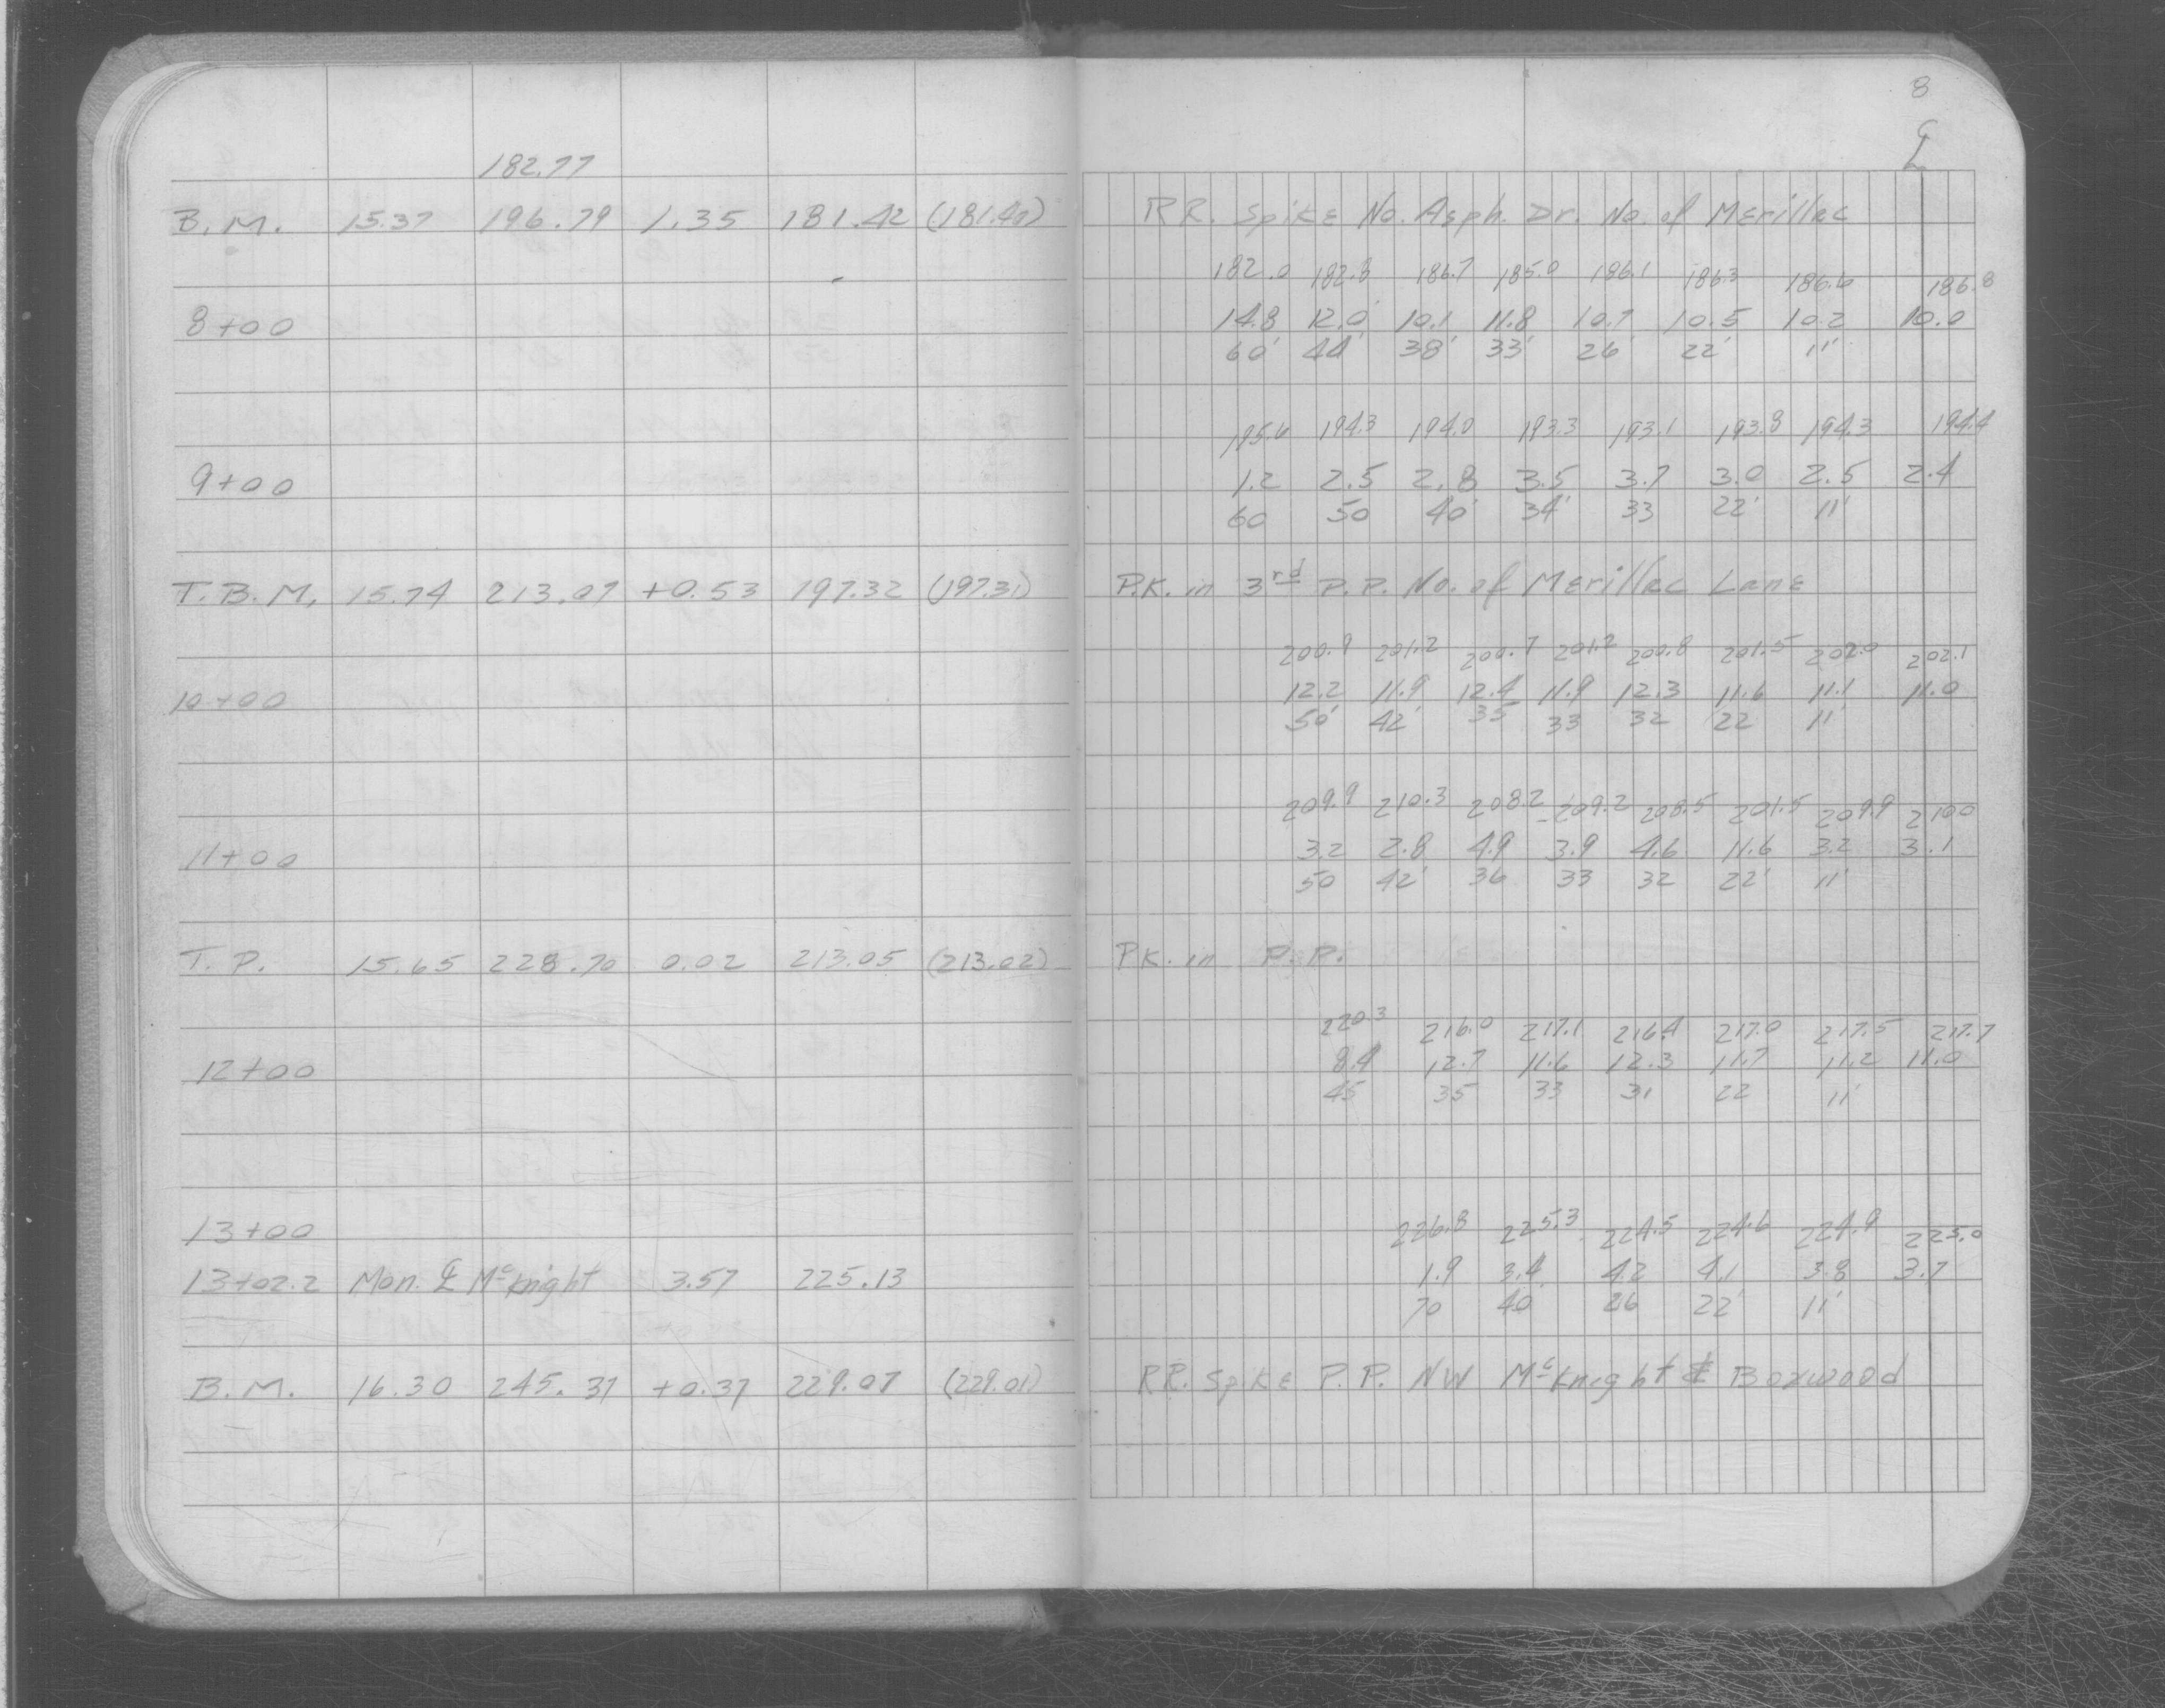 8
℄
182.77
B.M. 15.37 196.79 1.35 181.42 (181.40) RR. Spike No. Asph. Dr. No. of Merillac
182.0 182.8 186.7 185.0 186.1 186.3 186.6 186.8
8+00 14.8 12.0 10.1 11.8 10.7 10.5 10.2 10.0
60' 44' 38' 33' 26' 22' 11'
195.6 194.3 194.0 193.3 193.1 193.8 194.3 194.4
9+00 1.2 2.5 2.8 3.5 3.7 3.0 2.5 2.4
60 50 40' 34' 33 22' 11'
T.B.M. 15.74 213.07 +0.53 197.32 (197.31) P.K. in 3rd P.P. No. of Merillac Lane
200.9 201.2 200.7 201.2 200.8 201.5 202.0 202.1
10+00 12.2 11.9 12.4 11.9 12.3 11.6 11.1 11.0
50' 42' 35 33 32 22 11'
209.9 210.3 208.2 209.2 208.5 201.5 209.9 210.0
11+00 3.2 2.8 4.9 3.9 4.6 11.6 3.2 3.1
50 42' 36 33 32 22' 11'
T.P. 15.65 228.70 0.02 213.05 (213.02) P.K. in P.P.
220.3 216.0 217.1 216.4 217.0 217.5 217.7
12+00 8.4 12.7 11.6 12.3 11.7 11.2 11.0
45 35 33 31 22 11'
13+00 226.8 225.3 224.5 224.6 224.9 225.0
13+02.2 Mon. ℄ McKnight 3.57 225.13 1.9 3.4 4.2 4.1 3.8 3.7
70 40 26 22' 11'
B.M. 16.30 245.37 +0.37 229.07 (229.01) RR. Spike P.P. NW McKnight & Boxwood